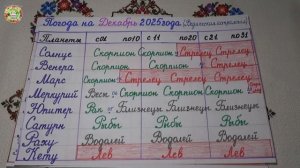 Погода на Декабрь 2025года
Планеты с 01 по10 с 11 по20 с 21 по31
Солнце Скорпион Скорпион Стрелец Стрелец
Венера Скорпион Скорпион Стрелец Стрелец
Марс Скорпион Стрелец Стрелец Стрелец
Меркурий Весы Скорпион Скорпион Скорпион
Юпитер Рак Близнецы Близнецы Близнецы
Сатурн Рыбы Рыбы Рыбы
Раху Водолей Водолей Водолей
Кету Лев Лев Лев